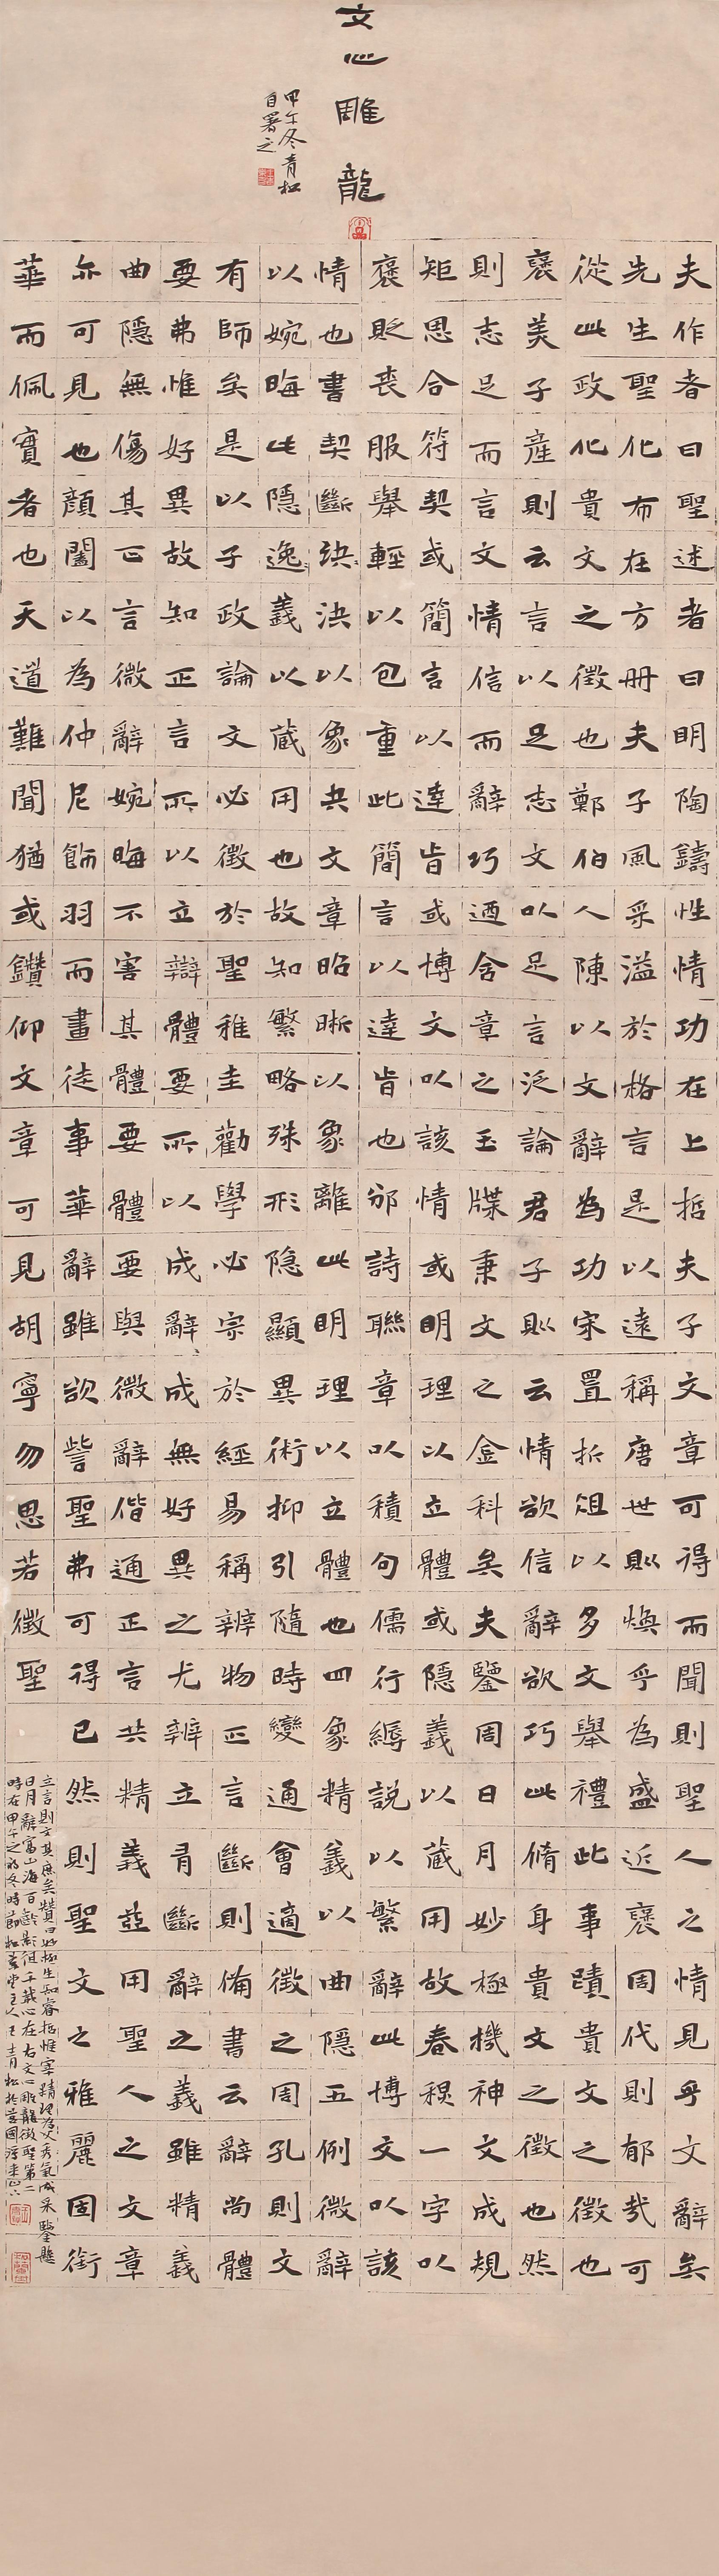 文心雕龍
甲午冬青松
自署之
夫作者曰聖述者曰明陶鑄性情功在上哲夫子文章可得而聞則聖人之情見乎文辭矣
先生聖化布在方冊夫子風采溢於格言是以遠稱唐世則煥乎為盛近襃周代則郁哉可
從此政化貴文之徵也鄭伯入陳以文辭為功宋置折俎以多文舉禮此事蹟貴文之徵也
襃美子產則云言以足志文以足言泛論君子則云情欲信辭欲巧此脩身貴文之徵也然
則志足而言文情信而辭巧迺含章之玉牒秉文之金科矣夫鑒周日月妙極機神文成規
矩思合符契或簡言以達旨或博文以該情或明理以立體或隱義以藏用故春秋一字以
襃貶喪服舉輕以包重此簡言以達旨也邠詩聯章以積句儒行縟說以繁辭此博文以該
情也書契斷決以象夬文章昭晰以象離此明理以立體也四象精義以曲隱五例微辭
以婉晦此隱逸義以藏用也故知繁略殊形隱顯異術抑引隨時變通會適徵之周孔則文
有師矣是以子政論文必徵於聖稚圭勸學必宗於經易稱辨物正言斷則備書云辭尚體
要弗惟好異故知正言所以立辯體要所以成辭辭成無好異之尤辨立有斷辭之義雖精義
曲隱無傷其正言微辭婉晦不害其體要體要與微辭偕通正言共精義並用聖人之文章
亦可見也顏闔以為仲尼飾羽而畫徒事華辭雖欲訾聖弗可得已然則聖文之雅麗固銜
華而佩實者也天道難聞猶或鑽仰文章可見胡寧勿思若徵聖
立言則文其庶矣贊曰妙極生知睿哲惟宰精理為文秀氣成采鑒懸
日月辭富山海百齡影徂千載心在右文心雕龍徵聖第二
時在甲午之初冬時節松堂主人王青松於莒國浮來山下